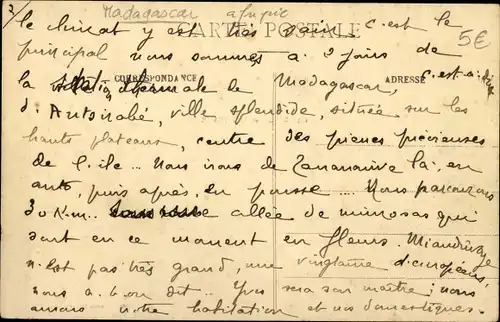 2/ Madagascar afrique
CARTE POSTALE
5€
le climat y est très sain, c'est le
principal nous sommes à 2 jours de
CORRESPONDANCE
ADRESSE
la station thermale de Madagascar, c'est-à-dire
d'Antsirabé, ville splendide, située sur les
hauts plateaux, centre des pierres précieuses
de l'île... Nous irons de Tananarive là, en
auto, puis après, en pousse... Nous parcourons
30 K.m. allée de mimosas qui
sont en ce moment en fleurs. Miandrivazo
n'est pas très grand, une vingtaine d'européens,
nous a-t-on dit... Yves sera son maître; nous
aurons notre habitation et nos domestiques.